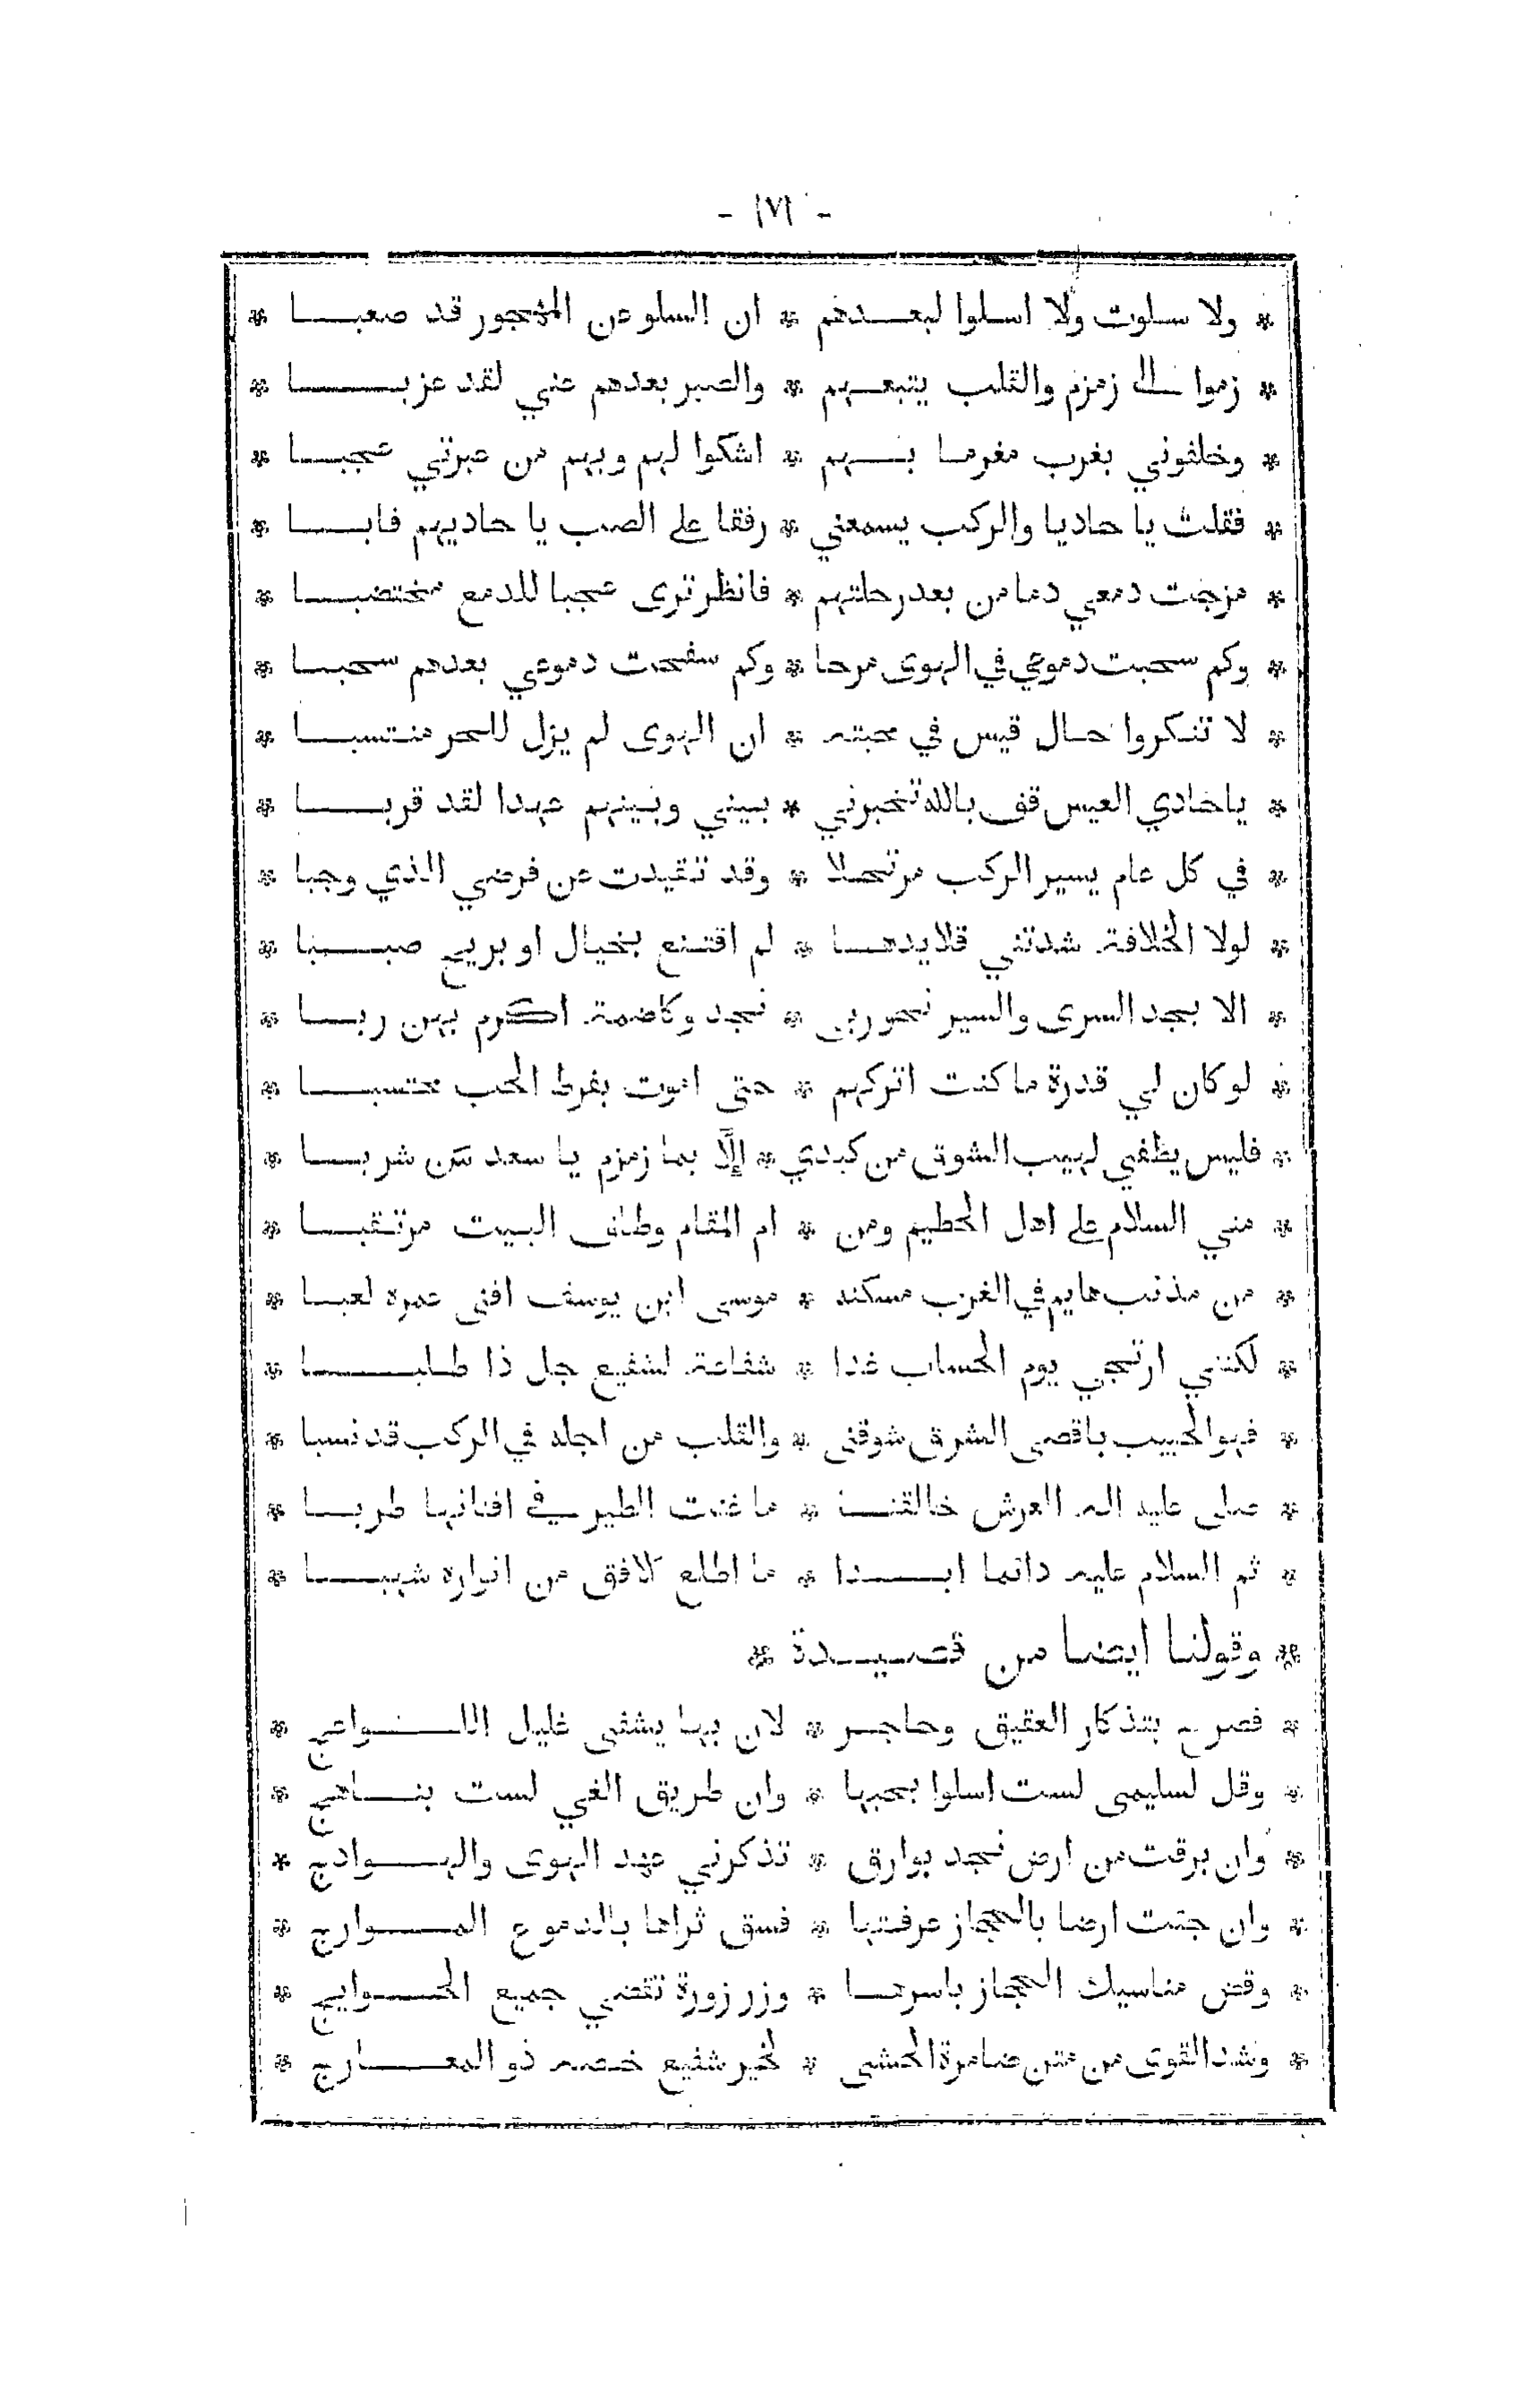 - ١٧١ -
* ولا سلوت ولا اسلوا لبعدهم * ان السلو عن المهجور قد صعبا *
* زموا الى زمزم والقلب يتبعهم * والصبر بعدهم عني لقد عزبا *
* وخلفوني بغرب مغرما بهم * اشكوا لهم وبهم من عبرتي عجبا *
* فقلت يا حاديا والركب يسمعني * رفقا على الصب يا حاديهم فابا *
* مزجت دمعي دما من بعد رحلتهم * فانظر ترى عجبا للدمع مختضبا *
* وكم سحبت دموعي في الهوى مرحا * وكم سفحت دموعي بعدهم سحبا *
* لا تنكروا حال قيس في محبته * ان الهوى لم يزل للحر منتسبا *
* يا حادي العيس قف بالله تخبرني * بيني وبينهم عهدا لقد قربا *
* في كل عام يسير الركب مرتحلا * وقد تقيدت عن فرضي الذي وجبا *
* لولا الخلافة شدتني قلايدها * لم اقتنع بخيال او بريح صبا *
* الا بجد السرى والسير نحو ربى * نجد وكاضمة اكرم بهن ربا *
* لو كان لي قدرة ما كنت اتركهم * حتى اموت بفرط الحب محتسبا *
* فليس يطفي لهيب الشوق من كبدي * إلّا بما زمزم يا سعد من شربا *
* مني السلام على اهل الحطيم ومن * ام المقام وطاف البيت مرتقبا *
* من مذنب هايم في الغرب مسكنه * موسى ابن يوسف افنى عمره لعبا *
* لكنني ارتجي يوم الحساب غدا * شفاعة لشفيع جل ذا طلبا *
* فهو الحبيب باقصى الشرق شوقنى * والقلب من اجله في الركب قد نسبا *
* صلى عليه اله العرش خالقنا * ما غنت الطير في افنانها طربا *
* ثم السلام عليه دائما ابدا * ما اطلع الافق من انواره شهبا *
* وقولنا ايضا من قصيدة *
* فصرح بتذكار العقيق وحاجر * لان بها يشفى غليل اللواعج *
* وقل لسليمى لست اسلوا بحبها * وان طريق الغي لست بناهج *
* وان برقت من ارض نجد بوارق * تذكرني عهد الهوى والهوادج *
* وان جئت ارضا بالحجاز عرفتها * فسق ثراها بالدموع الموارج *
* وقض مناسيك الحجاز باسرها * وزر زورة تقضي جميع الحوايج *
* وشد القوى من متن ضامرة الحشى * لخير شفيع خصه ذو المعارج *